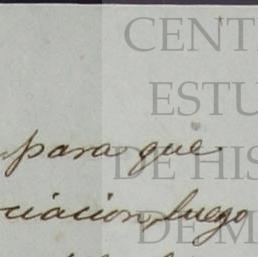 CENT
ESTU
para que
DE HIS
ciacion, luego
DE M